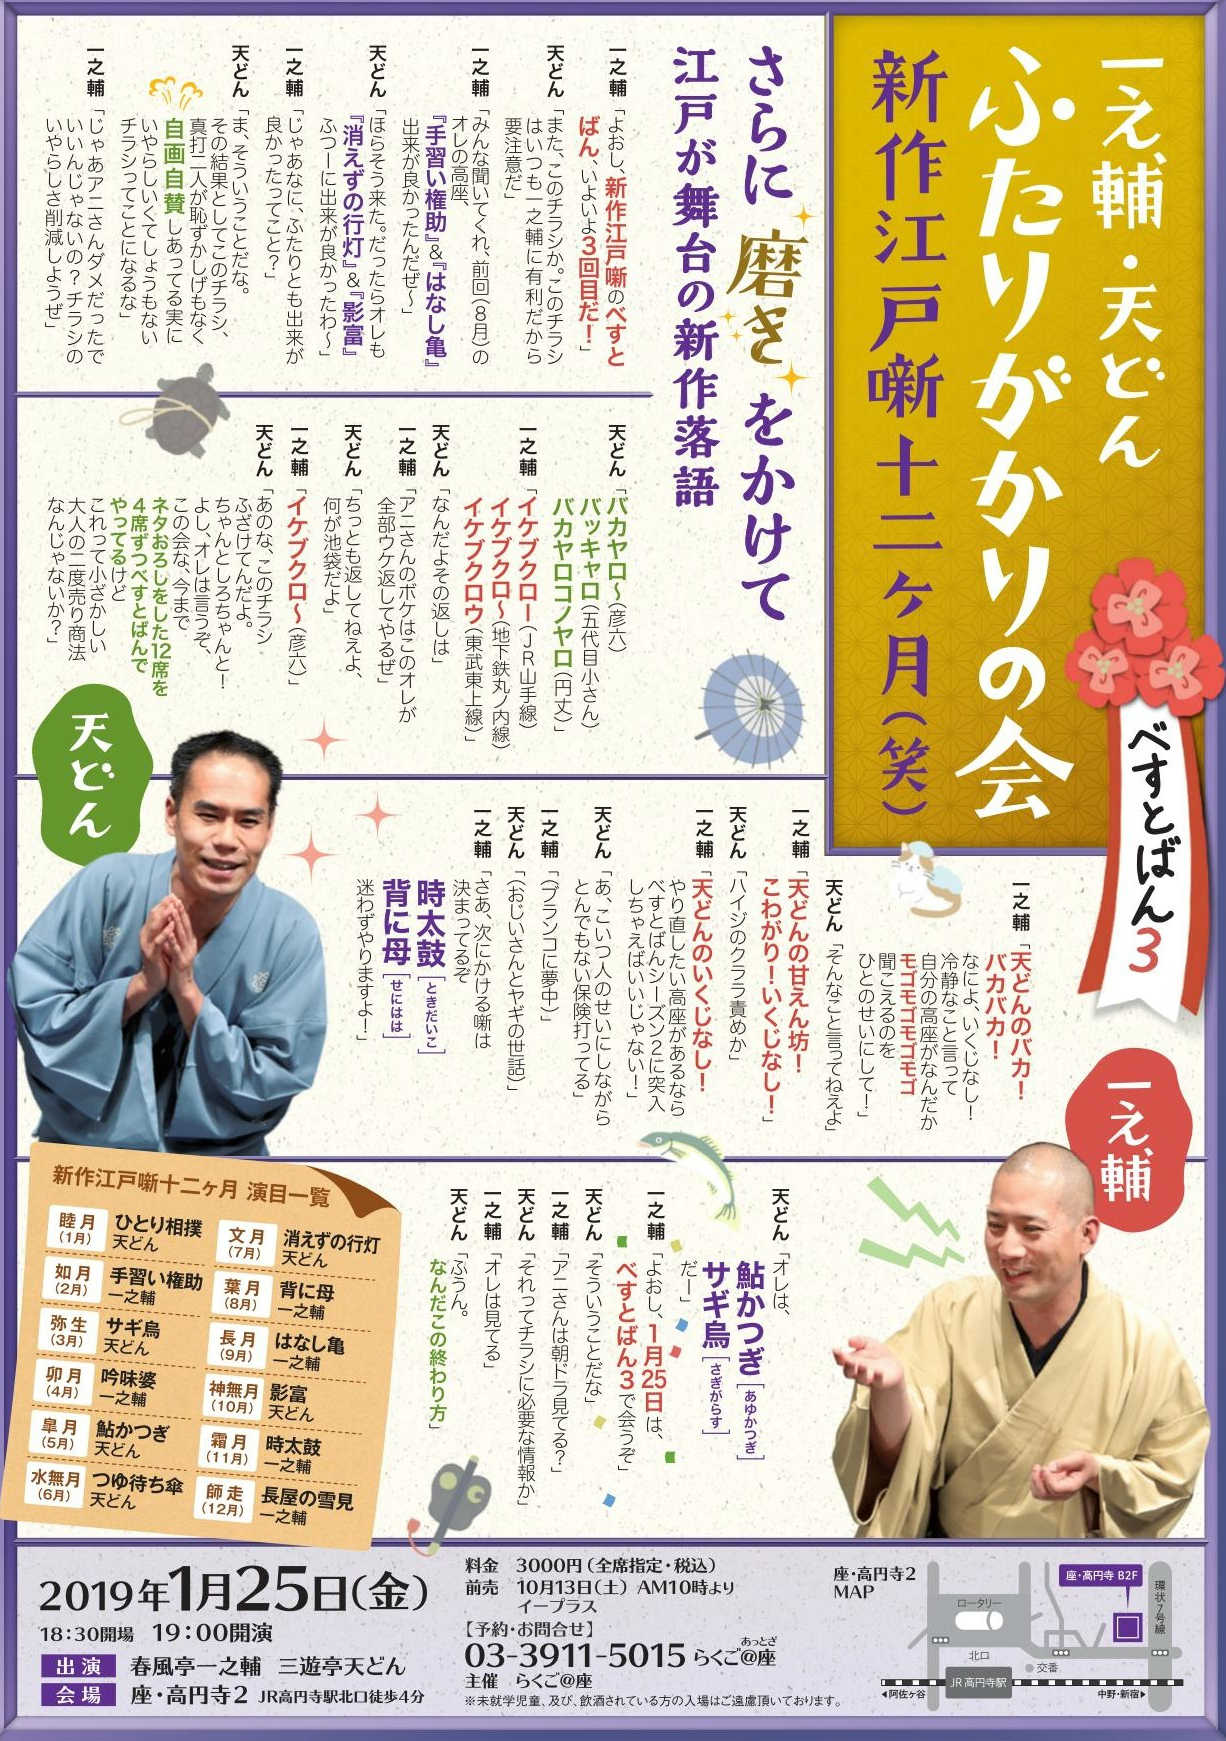 一之輔・天どん
ふたりがかりの会
新作江戸噺十二ヶ月（笑）
べすとばん3
さらに磨きをかけて
江戸が舞台の新作落語
一之輔「よおし、新作江戸噺のべすと
ばん、いよいよ３回目だ！」
天どん「また、このチラシか。このチラシ
はいつも一之輔に有利だから
要注意だ」
一之輔「みんな聞いてくれ、前回（８月）の
オレの高座、
『手習い権助』&『はなし亀』
出来が良かったんだぜ〜」
天どん「ほらそう来た。だったらオレも
『消えずの行灯』&『影富』
ふつーに出来が良かったわ〜」
一之輔「じゃあなに、ふたりとも出来が
良かったってこと？」
天どん「ま、そういうことだな。
その結果としてこのチラシ、
真打二人が恥ずかしげもなく
自画自賛しあってる実に
いやらしいくてしょうもない
チラシってことになるな」
一之輔「じゃあアニさんダメだったで
いいんじゃないの？チラシの
いやらしさ削減しようぜ」
天どん「バカヤロ〜（彦六）
バッキャロ（五代目小さん）
バカヤロコノヤロ（円丈）」
一之輔「イケブクロー（ＪＲ山手線）
イケブクロ〜（地下鉄丸ノ内線）
イケブクロウ（東武東上線）」
天どん「なんだよその返しは」
一之輔「アニさんのボケはこのオレが
全部ウケ返してやるぜ」
天どん「ちっとも返してねえよ、
何が池袋だよ」
一之輔「イケブクロ〜（彦六）」
天どん「あのな、このチラシ
ふざけてんだよ。
ちゃんとしろちゃんと！
よし、オレは言うぞ、
この会な、今まで
ネタおろしをした12席を
４席ずつべすとばんで
やってるけど
これって小ざかしい
大人の二度売り商法
なんじゃないか？」
一之輔「天どんのバカ！
バカバカ！
なによ、いくじなし！
冷静なこと言って
自分の高座がなんだか
モゴモゴモゴモゴ
聞こえるのを
ひとのせいにして！」
天どん「そんなこと言ってねえよ」
一之輔「天どんの甘えん坊！
こわがり！いくじなし！」
天どん「ハイジのクララ責めか」
一之輔「天どんのいくじなし！
やり直したい高座があるなら
べすとばんシーズン２に突入
しちゃえばいいじゃない！」
天どん「あ、こいつ人のせいにしながら
とんでもない保険打ってる」
一之輔「（ブランコに夢中）」
天どん「（おじいさんとヤギの世話）」
一之輔「さあ、次にかける噺は
決まってるぞ
時太鼓［ときだいこ］
背に母［せにはは］
迷わずやりますよ！」
天どん
一之輔
天どん「オレは、
鮎かつぎ［あゆかつぎ］
サギ烏［さぎがらす］
だー」
一之輔「よおし、１月25日は、
べすとばん３で会うぞ」
天どん「そういうことだな」
一之輔「アニさんは朝ドラ見てる？」
天どん「それってチラシに必要な情報か」
一之輔「オレは見てる」
天どん「ふうん。
なんだこの終わり方」
新作江戸噺十二ヶ月 演目一覧
睦月（1月） ひとり相撲 天どん
如月（2月） 手習い権助 一之輔
弥生（3月） サギ烏 天どん
卯月（4月） 吟味婆 一之輔
皐月（5月） 鮎かつぎ 天どん
水無月（6月） つゆ待ち傘 天どん
文月（7月） 消えずの行灯 天どん
葉月（8月） 背に母 一之輔
長月（9月） はなし亀 一之輔
神無月（10月） 影富 天どん
霜月（11月） 時太鼓 一之輔
師走（12月） 長屋の雪見 一之輔
2019年1月25日（金）
18：30開場 19：00開演
出演 春風亭一之輔 三遊亭天どん
会場 座・高円寺2 JR高円寺駅北口徒歩4分
料金 3000円（全席指定・税込）
前売 10月13日（土）AM10時より
イープラス
【予約・お問合せ】
03-3911-5015 らくご@座
あっとざ
主催 らくご@座
※未就学児童、及び、飲酒されている方の入場はご遠慮頂いております。
座・高円寺2
MAP
座・高円寺 B2F
環状7号線
ロータリー
北口
交番
JR 高円寺駅
◀阿佐ヶ谷
中野・新宿▶